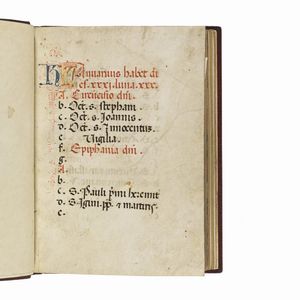 KL Januarius habet di
es. xxxj. luna. xxx.
A. Circūcisio dñi.
b. Oct. s. stephani.
c. Oct. s. Joannis.
d. Oct. s. Innocentus.
e. Vigilia.
f. Epiphania dñi.
g.
A.
b.
c. S. Pauli p̄mi heremit
d. S. Igini. pp̄. & martiris.
e.